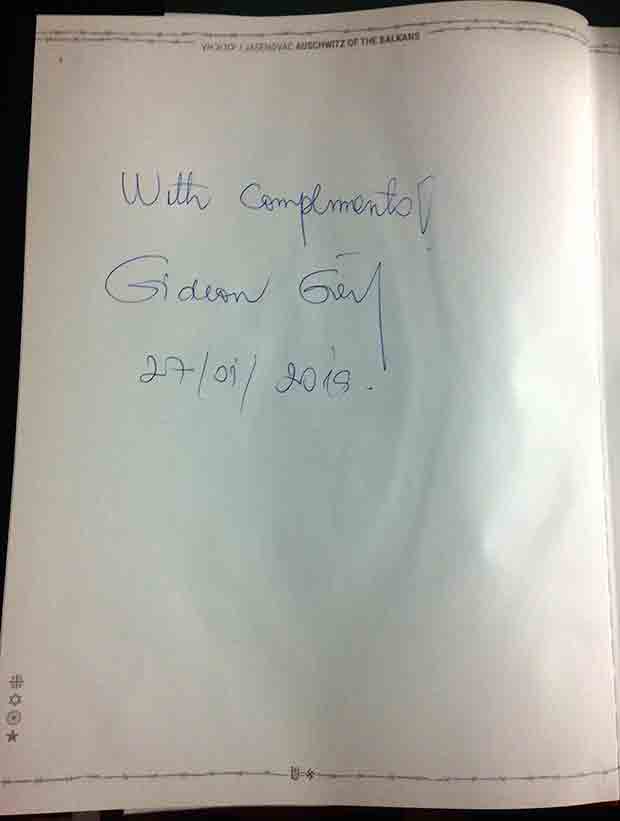 JASENOVAC AUSCHWITZ OF THE BALKANS
With Compliments!
Gideon Greif
27/01/2018.